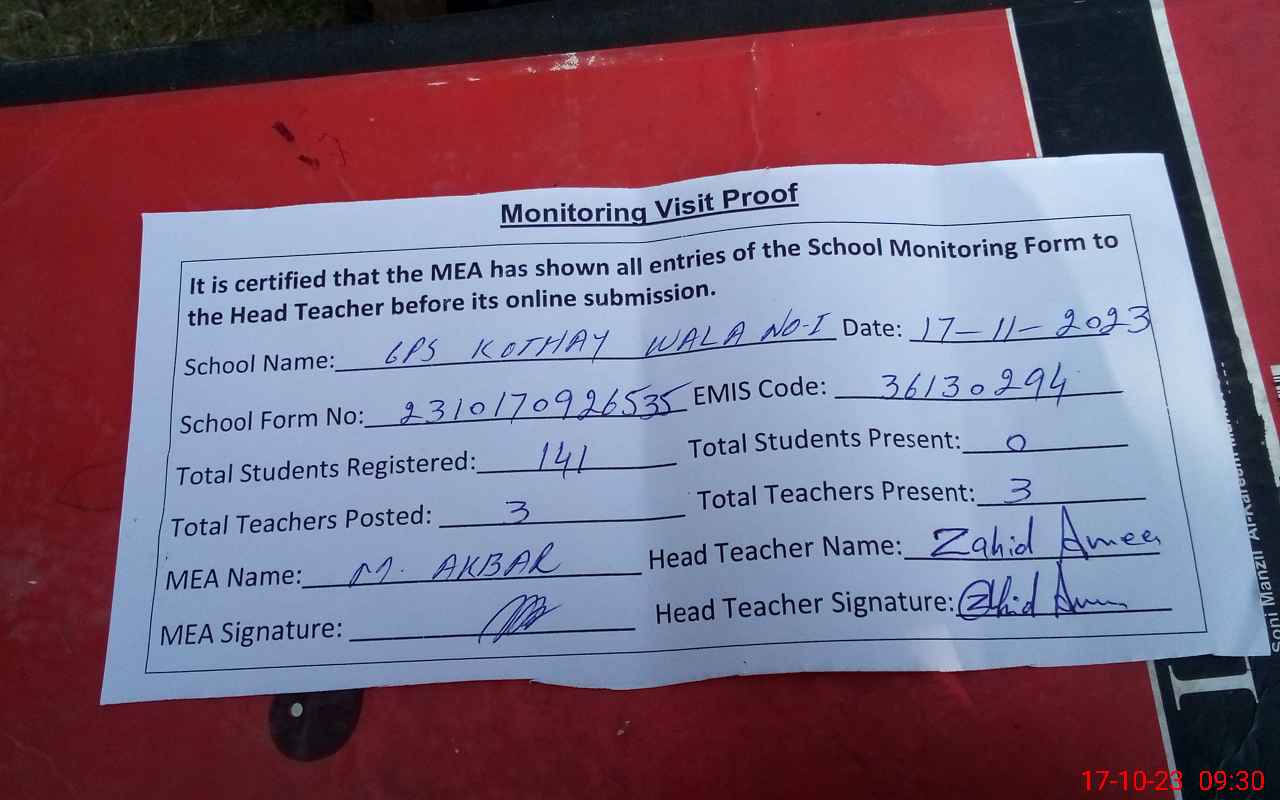 Monitoring Visit Proof
It is certified that the MEA has shown all entries of the School Monitoring Form to
the Head Teacher before its online submission.
School Name: GPS KOTHAY WALA NO-I Date: 17-11-2023
School Form No: 2310170926535 EMIS Code: 36130294
Total Students Registered: 141 Total Students Present: 0
Total Teachers Posted: 3 Total Teachers Present: 3
MEA Name: M. AKBAR Head Teacher Name: Zahid Ameer
MEA Signature: Head Teacher Signature: Zahid
Soni Manzil Al-Kareem
17-10-23 09:30